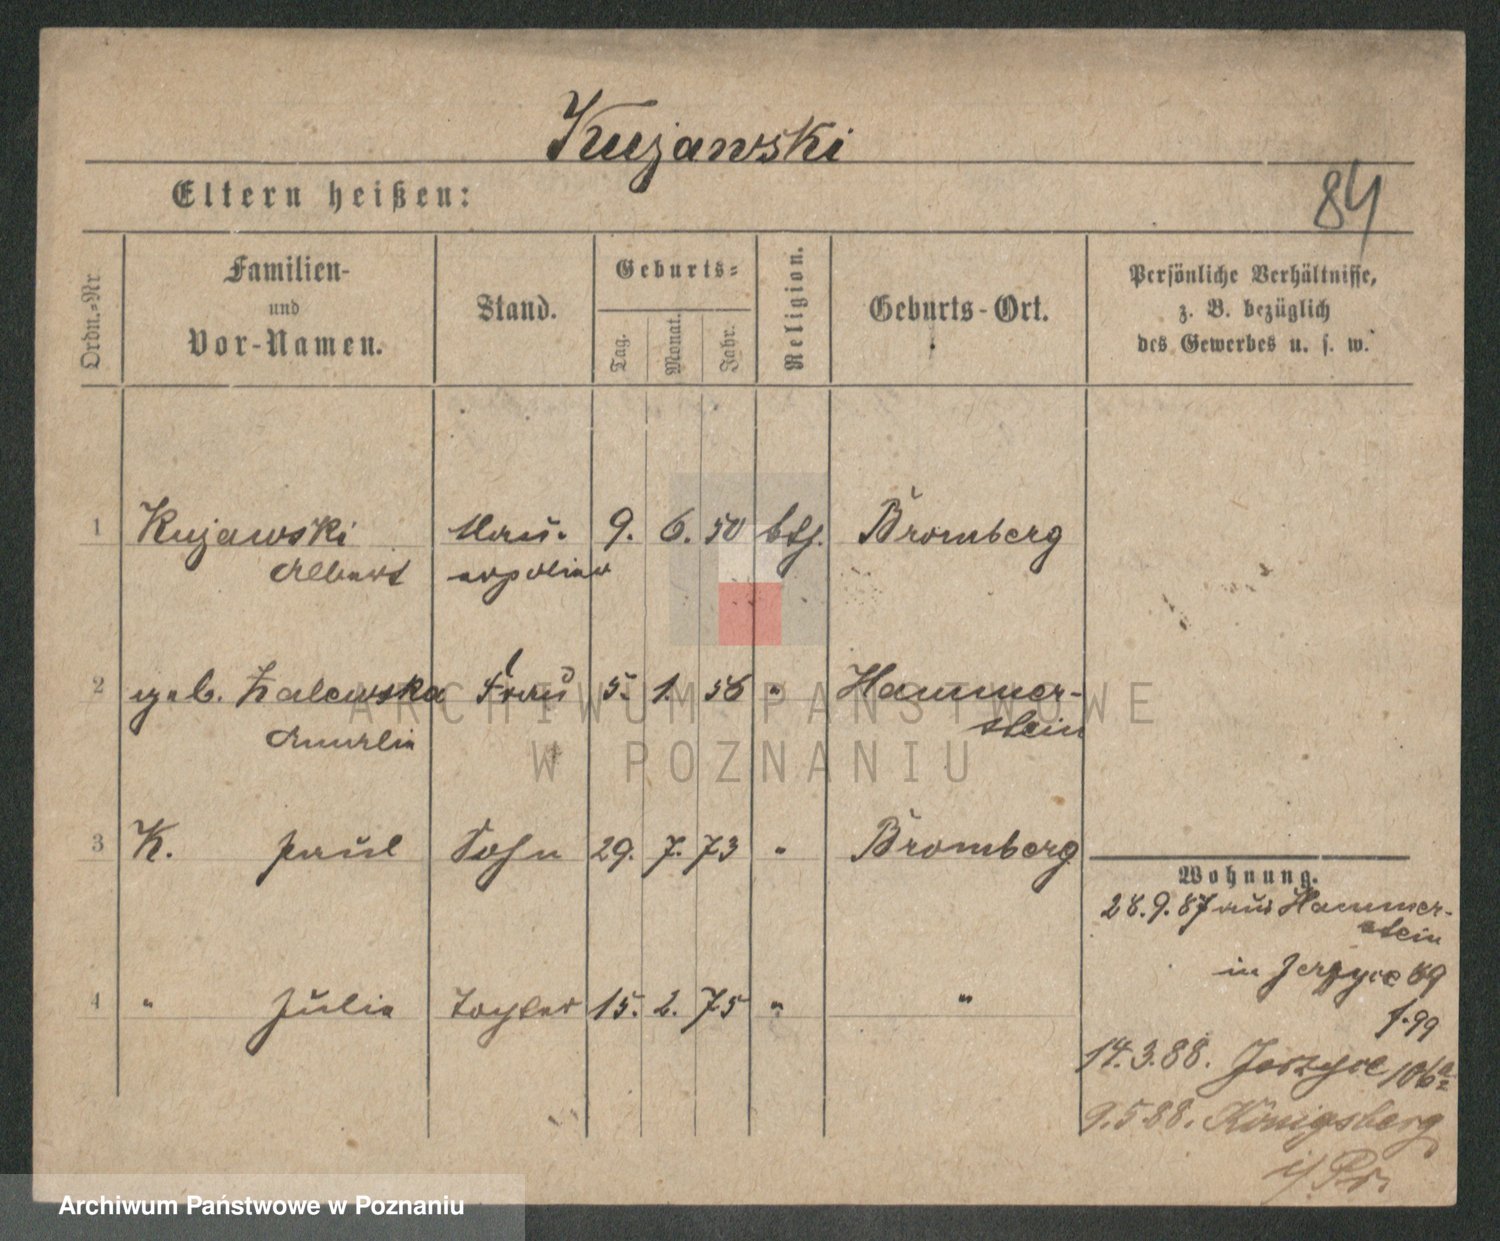 Kujawski
Eltern heißen:
84
Ordn.-Nr
Familien-
und
Vor-Namen.
Stand.
Geburts-
Tag.
Monat.
Jahr.
Religion.
Geburts-Ort.
Persönliche Verhältnisse,
z. B. bezüglich
des Gewerbes u. s. w.
1 Kujawski Mau- 9. 6. 50 kth. Bromberg
Albert erpolier
2 geb. Zalewska Frau 5. 1. 56 " Hammer-
Amalie stein
3 K. Paul Sohn 29. 7. 73 " Bromberg
4 " Julie Tochter 15. 2. 75 " "
Wohnung.
28.9.87 aus Hammer-
stein
in Jerzyce 89
f. 99
14.3.88. Jerzyce 106a
9.5.88. Königsberg
i/Pr.
ARCHIWUM PAŃSTWOWE
W POZNANIU
Archiwum Państwowe w Poznaniu